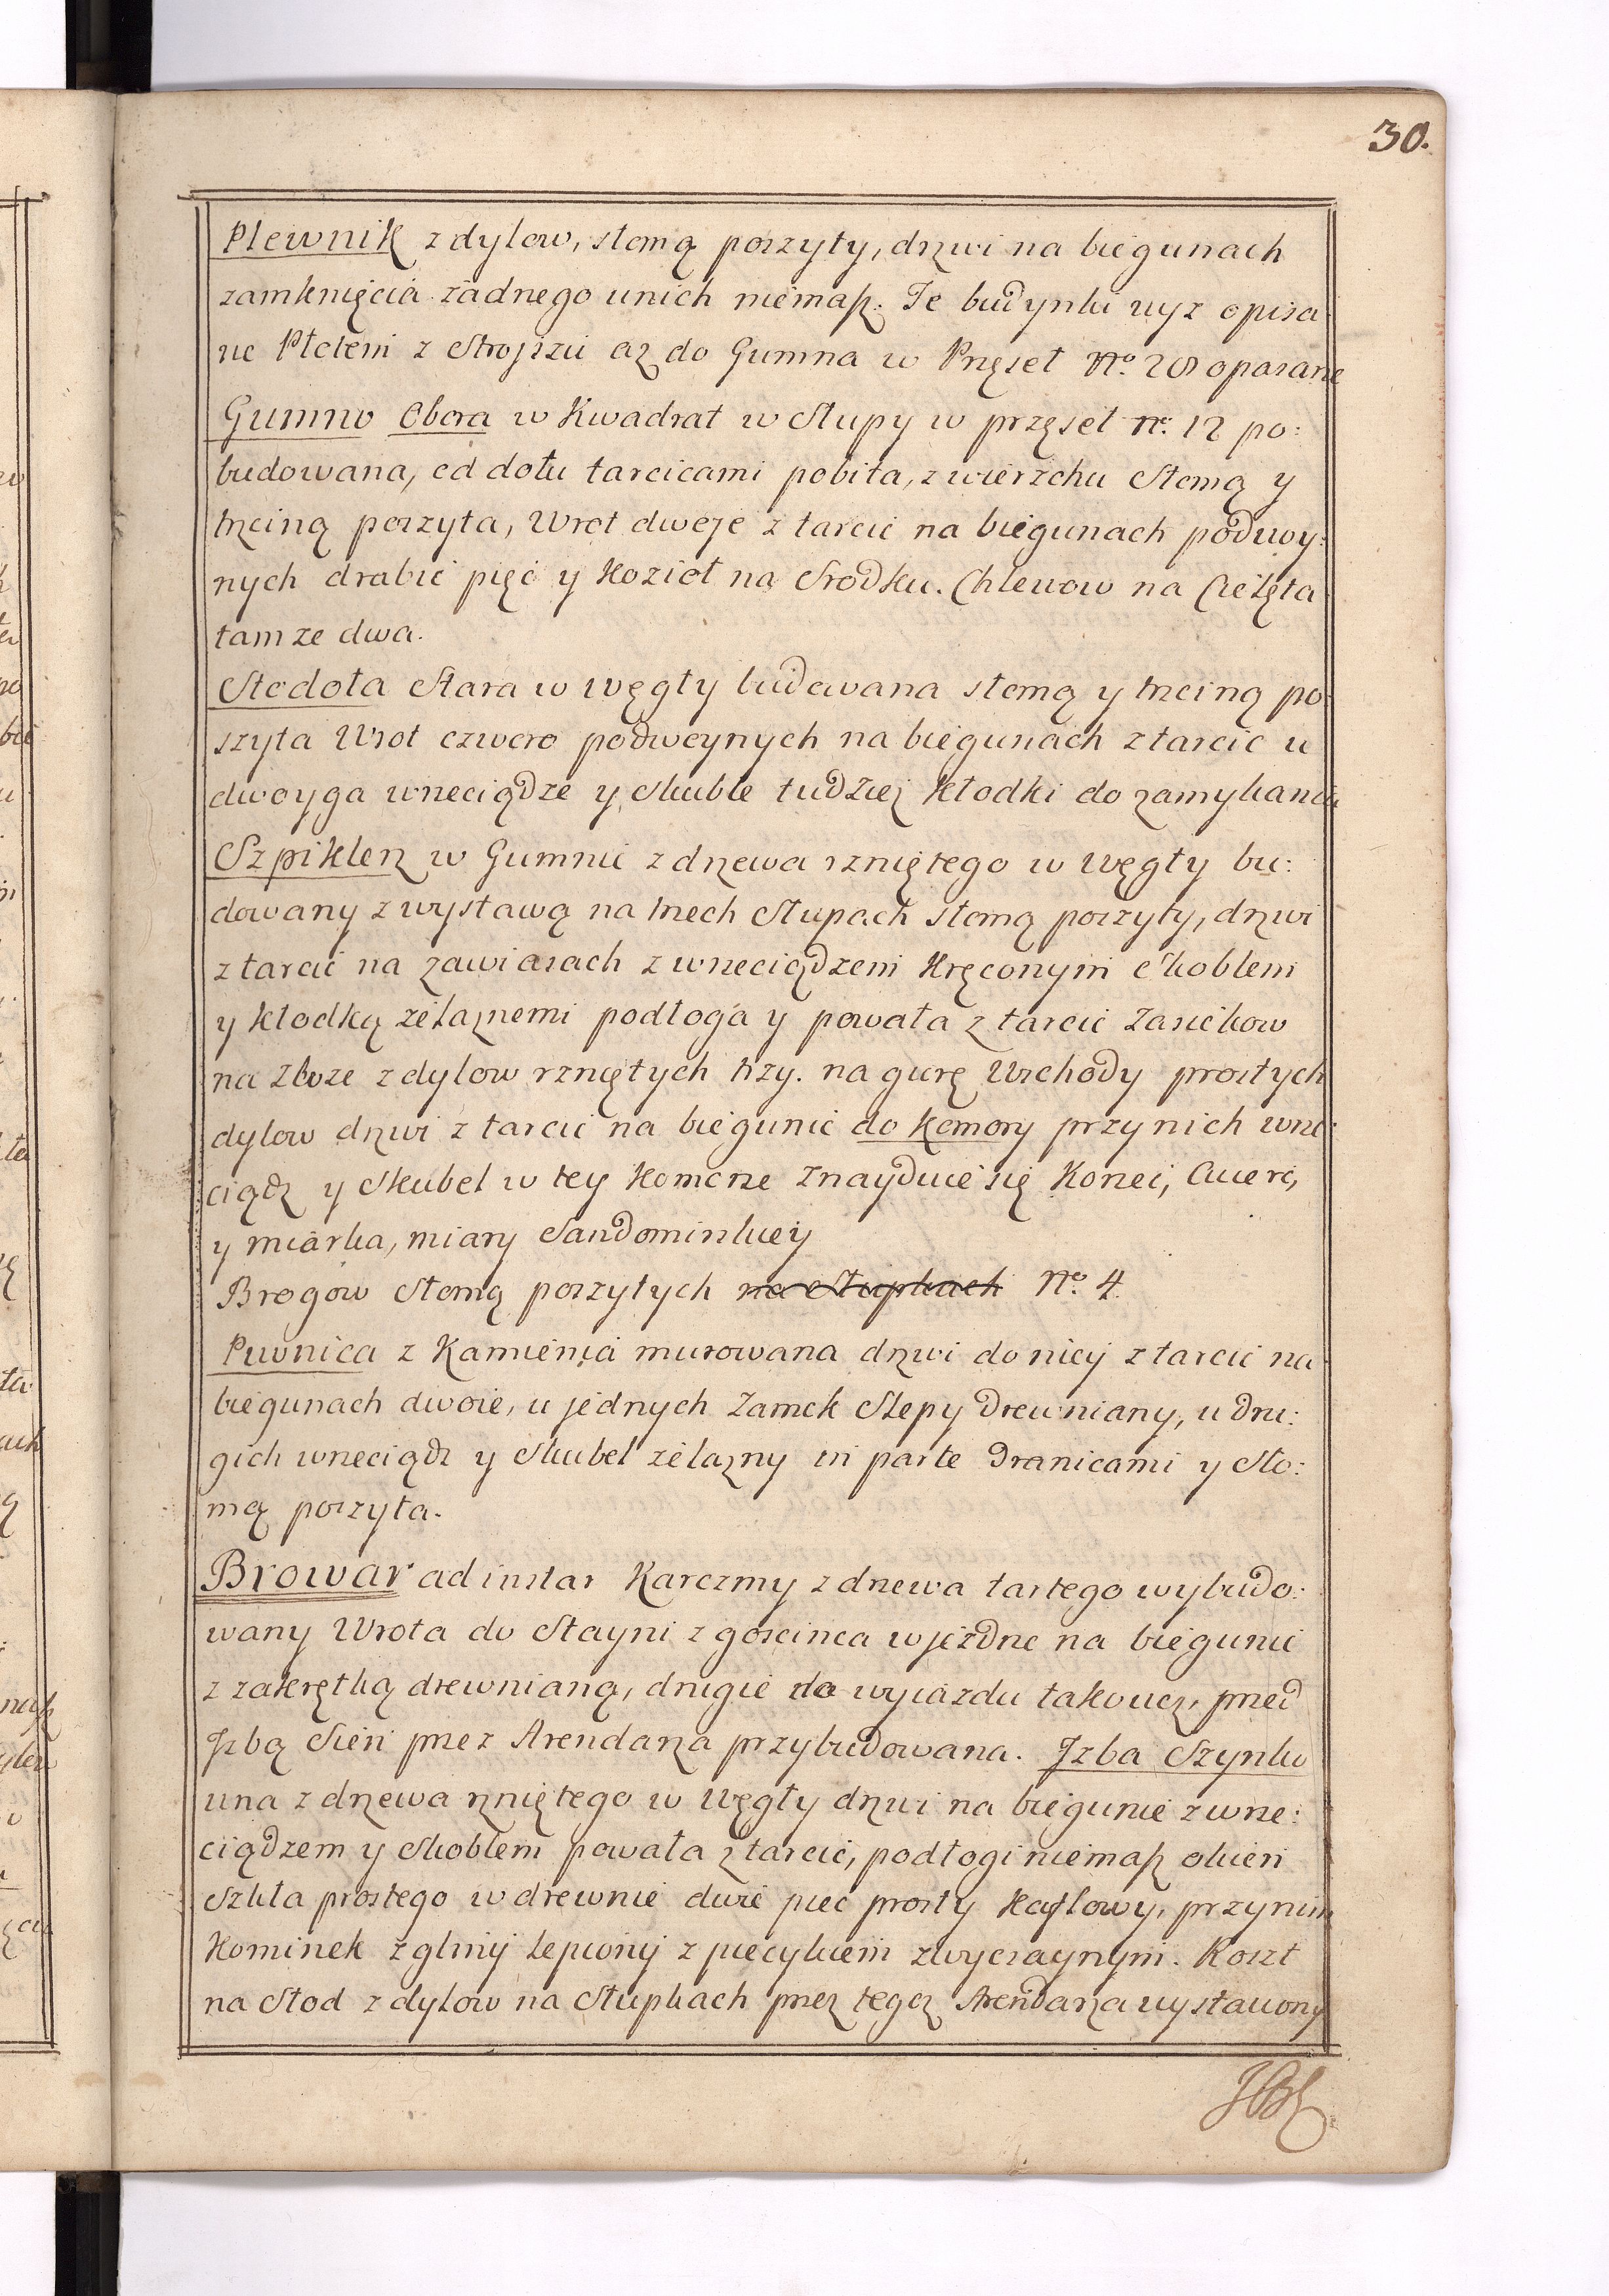 30.
Plewnik z dylow, słomą poszyty, drzwi na biegunach
zamknięcia żadnego unich niemasz. Te budynki wyz opisa:
ne Płotem z Stroiszu az do Gumna w Przęseł No. 28 opasane
Gumno Obora w Kwadrat w Słupy w przęseł no. 12 po:
budowana, od dołu tarcicami pobita, z wierzchu Słomą y
trzciną poszyta, Wrot dwoje z tarcic na biegunach podwoy:
nych drabic pięć y Kozioł na Srodku. Chlewow na Cielęta
tamze dwa.
Stodoła Stara w węgły budowana słomą y trzciną po:
szyta Wrot czworo podwoynych na biegunach z tarcic u
dwoyga wrzeciądze y Skoble tudziez Kłodki do zamykania
Szpiklerz w Gumnie z drzewa rzniętego w Węgły bu:
dowany z wystawą na trzech Słupach słomą poszyty, drzwi
z tarcic na zawiasach z wrzeciądzem Kręconym Skoblem
y kłodką żelaznemi podłoga y powała z tarcic Zasiekow
na Zboze z dylow rzniętych trzy. na gurę Wschody prostych
dylow drzwi z tarcic na biegunie do Komory przy nich wrze:
ciądz y Skubel w tey Komorze Znayduie się Korzec, Cwierc,
y miarka, miary Sandomirskiey
Brogow Słomą poszytych na Słupkach No. 4
Piwnica z Kamienia murowana drzwi do niey z tarcic na
biegunach dwoie, u jednych Zamek Slepy Drewniany, u dru:
gich wrzeciądz y Skubel żelazny in parte Dranicami y Sło:
mą poszyta.
Browar ad instar Karczmy z drzewa tartego wybudo:
wany Wrota do Stayni z goscinca wjezdne na biegunie
z zakrętką drewnianą, drugie do wyiazdu takowez, przed
Jzbą Sien przez Arendarza przybudowana. Jzba Szynko
wna z drzewa rzniętego w Węgły drzwi na biegunie z wrze:
ciądzem y Skoblem powała z tarcic, podłogi niemasz okien
Szkła prostego w drewnie dwie piec prosty Kaflowy, przy nim
Kominek z gliny lepiony z piecykiem zwyczaynym. Koszt
na Słod z dylow na Słupkach przez tegoz Arendarza wystawiony